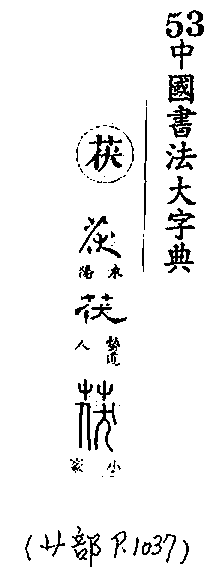 53
中國書法大字典
茯
茯
茯
茯
小篆
(艹部 P.1037)